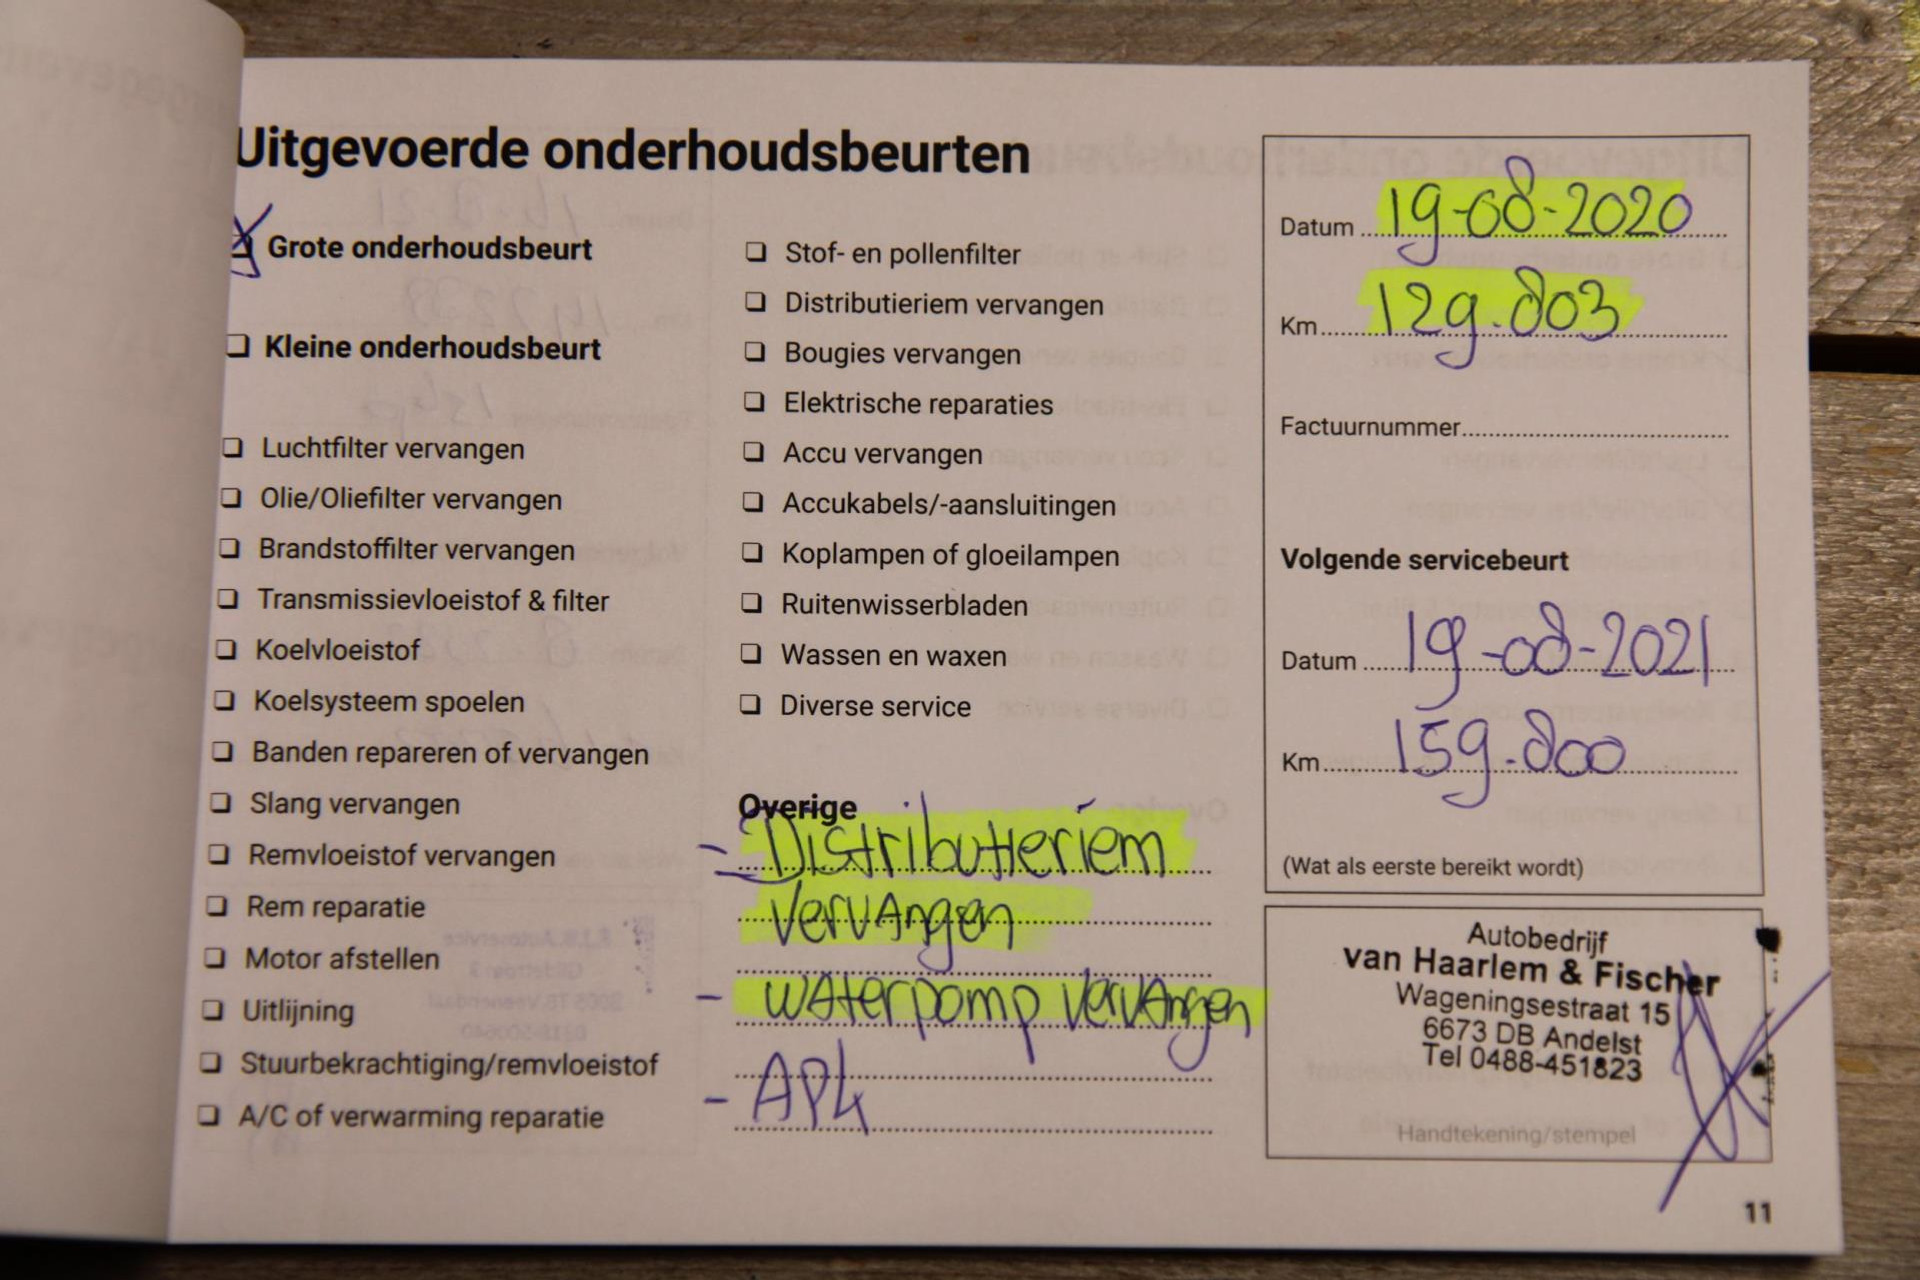 Uitgevoerde onderhoudsbeurten
Grote onderhoudsbeurt
Kleine onderhoudsbeurt
Luchtfilter vervangen
Olie/Oliefilter vervangen
Brandstoffilter vervangen
Transmissievloeistof & filter
Koelvloeistof
Koelsysteem spoelen
Banden repareren of vervangen
Slang vervangen
Remvloeistof vervangen
Rem reparatie
Motor afstellen
Uitlijning
Stuurbekrachtiging/remvloeistof
A/C of verwarming reparatie
Stof- en pollenfilter
Distributieriem vervangen
Bougies vervangen
Elektrische reparaties
Accu vervangen
Accukabels/-aansluitingen
Koplampen of gloeilampen
Ruitenwisserbladen
Wassen en waxen
Diverse service
Overige
- Distributieriem
vervangen
- waterpomp vervangen
- APK
Datum 19-08-2020
Km 129.803
Factuurnummer
Volgende servicebeurt
Datum 19-08-2021
Km 159.800
(Wat als eerste bereikt wordt)
Autobedrijf
van Haarlem & Fischer
Wageningsestraat 15
6673 DB Andelst
Tel 0488-451823
Handtekening/stempel
11